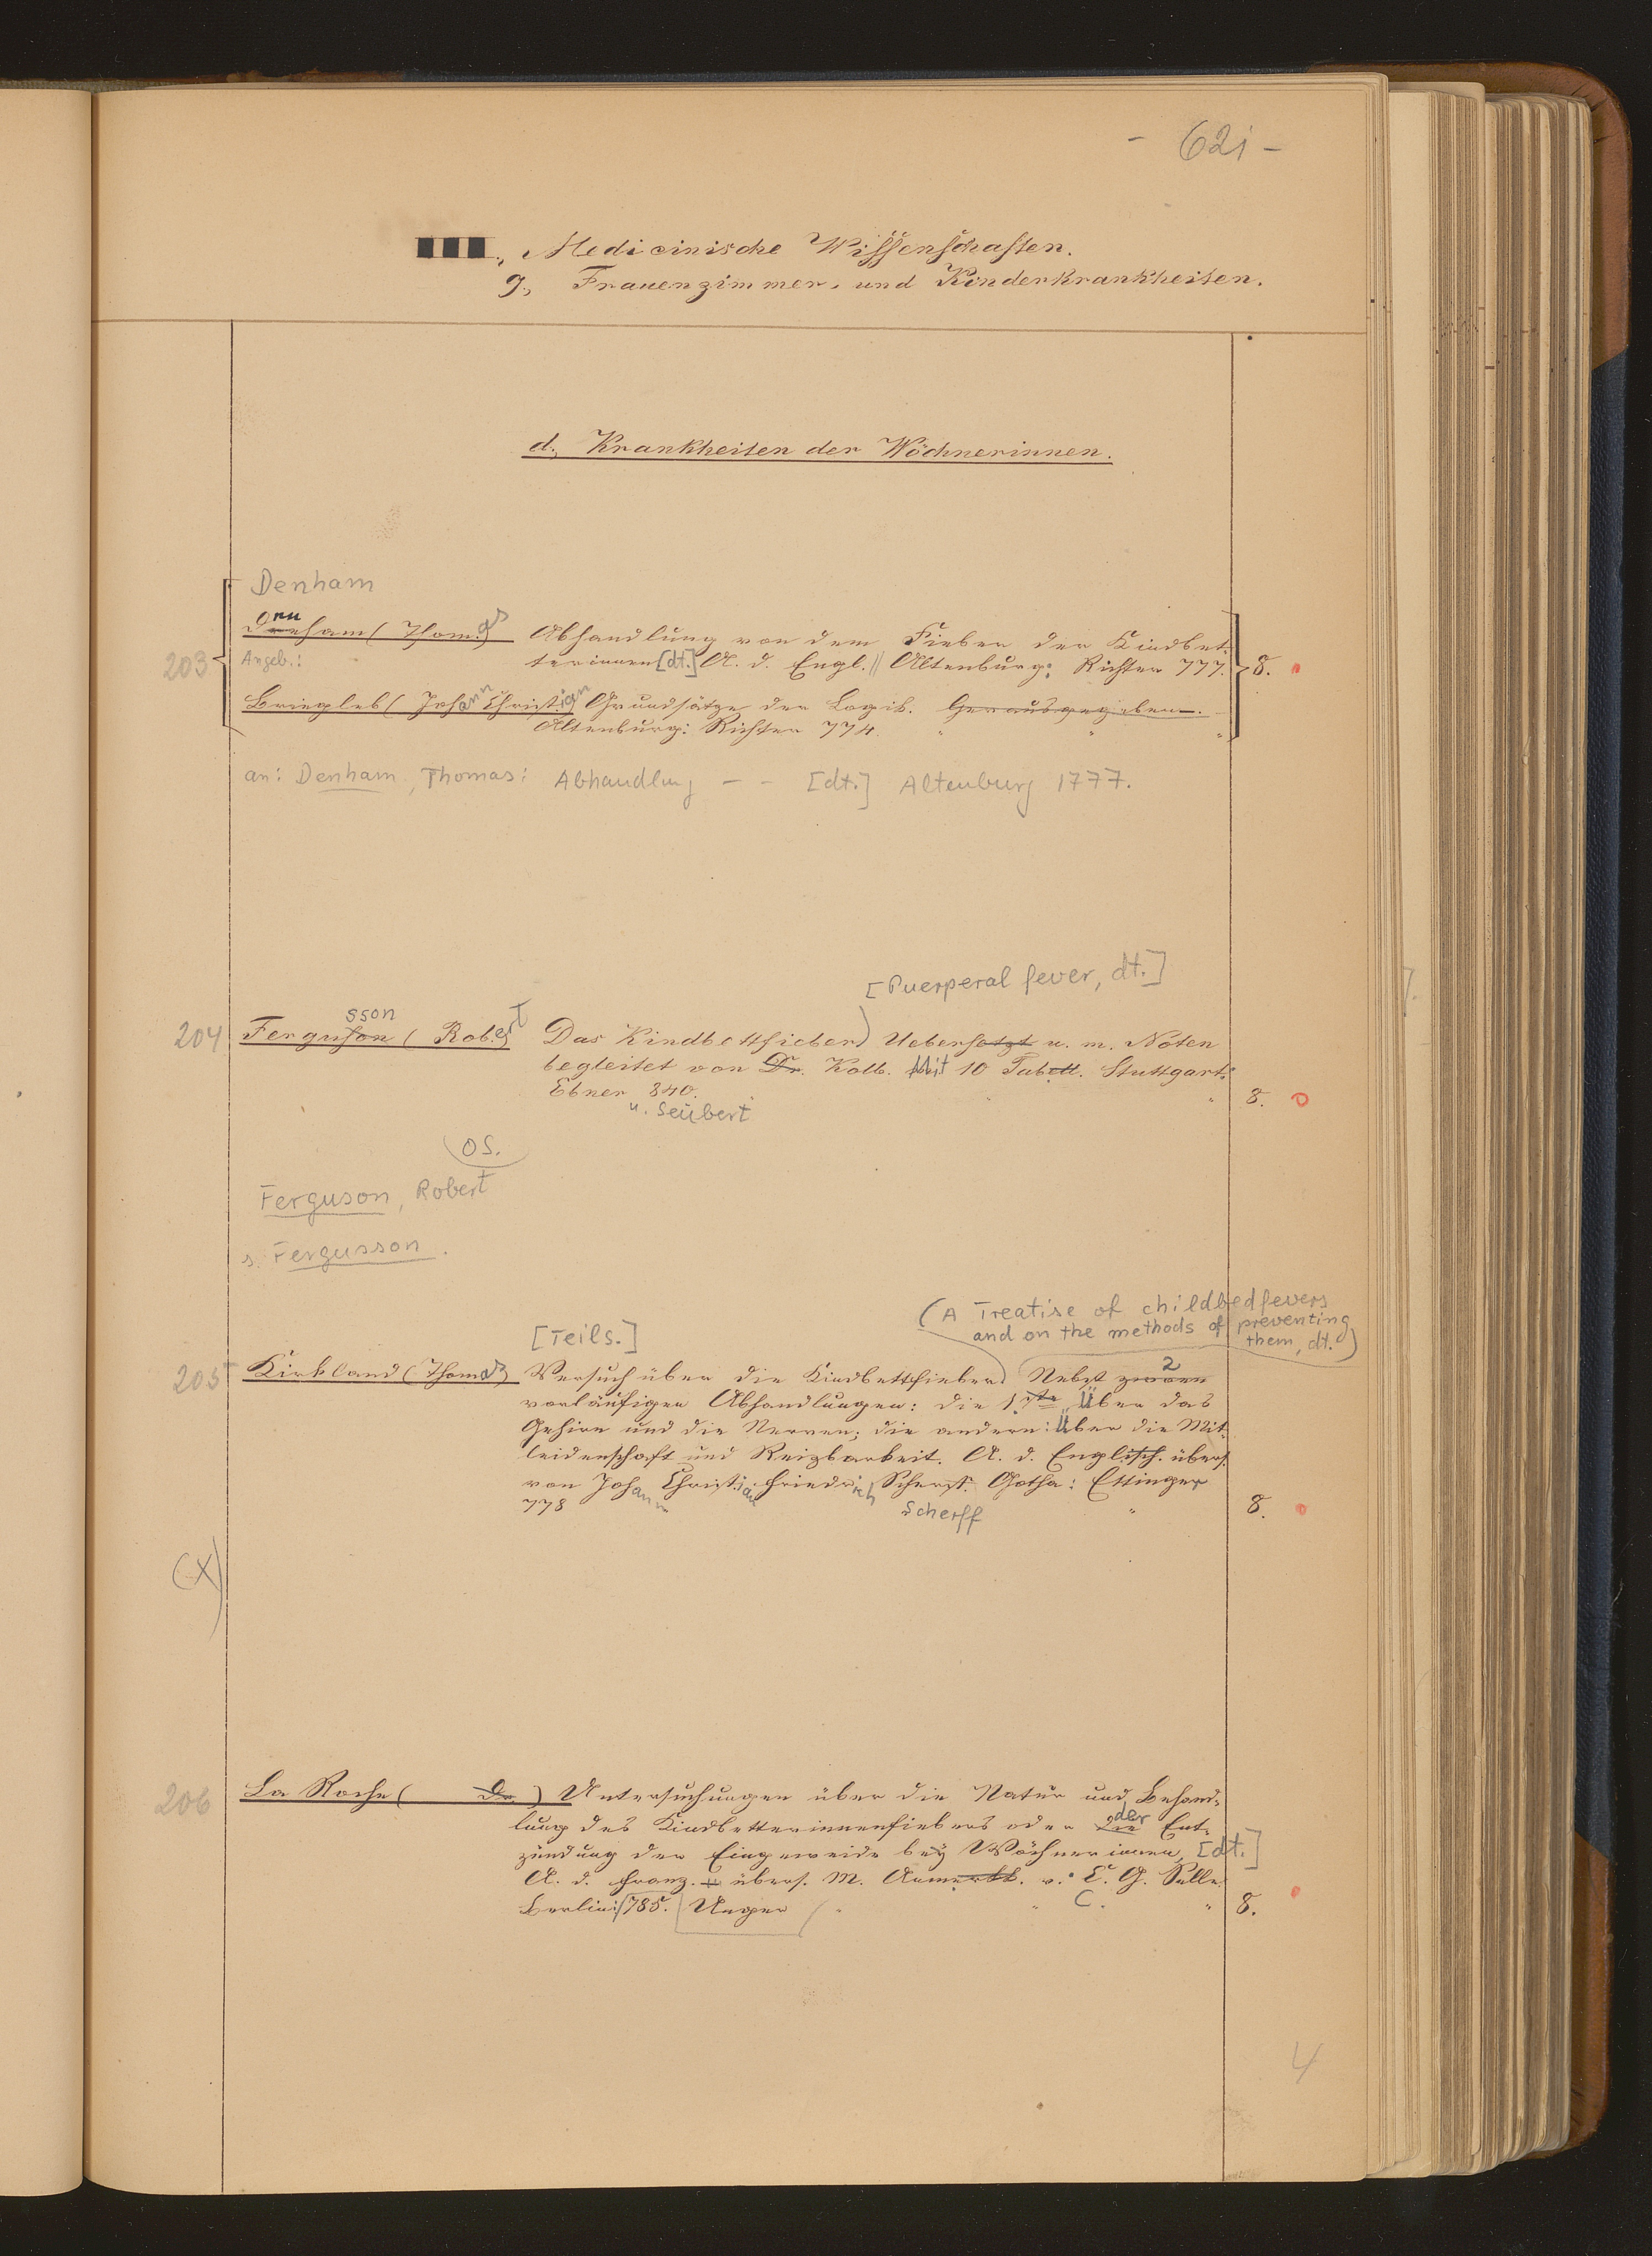 - 621 -
Medicinische Wissenschaften.
g., Frauenzimmer- und Kinderkrankheiten.
d., Krankheiten der Wöchnerinnen.
Denham
203 Denham (Thomas Abhandlung von dem Fieber der Kindbet-
Angeb.: terinnen [dt.] A. d. Engl. // Altenburg: Richter 777. 8.
Briegleb (Johann Christian Grundsätze der Logik. Herausgegeben.
Altenburg: Richter 774. " " "
an: Denham, Thomas: Abhandlung - - [dt.] Altenburg 1777.
[Puerperal fever, dt.]
sson
204 Ferguson (Robert Das Kindbettfieber) Uebersetzt u. m. Noten
begleitet von Dr. Kolb. Mit 10 Tabell. Stuttgart:
Ebner 840. " 8.
u. Seubert
OS.
Ferguson, Robert
s. Fergusson.
(A Treatise of childbedfevers
and on the methods of preventing
them, dt.)
[Teils.]
205 Kirkland (Thomas) Versuch über die Kindbettfieber) Nebst zwoen 2
vorläufigen Abhandlungen: die 1ste Über das
Gehirn und die Nerven; die andern: Über die Mit-
leidenschaft und Reizbarkeit. A. d. Englisch. übers.
von Johann Christian Friedrich Scherff. Gotha: Ettinger
778 Scherff " 8.
(X)
206 La Roche ( Dr.) Untersuchungen über die Natur und Behand-
lung des Kindbetterinnenfiebers oder die der Ent-
zündung der Eingeweide bey Wöchnerinnen, [dt.]
A. d. Franz. übers. M. Anmerkk. v. C. G. Selle.
Berlin: 785. Unger " " C. " 8.
4